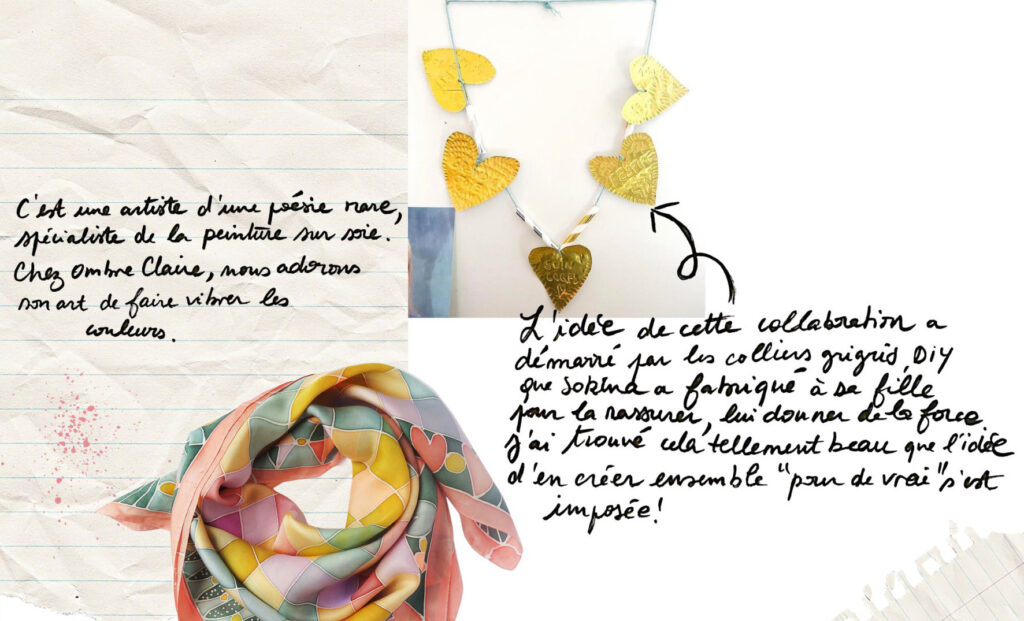 C'est une artiste d'une poésie rare,
spécialiste de la peinture sur soie.
Chez Ombre Claire, nous adorons
son art de faire vibrer les
couleurs.
L'idée de cette collaboration a
démarré par les colliers grigris DIY
que Sokina a fabriqué à sa fille
pour la rassurer, lui donner de la force.
J'ai trouvé cela tellement beau que l'idée
d'en créer ensemble "pour de vrai" s'est
imposée!